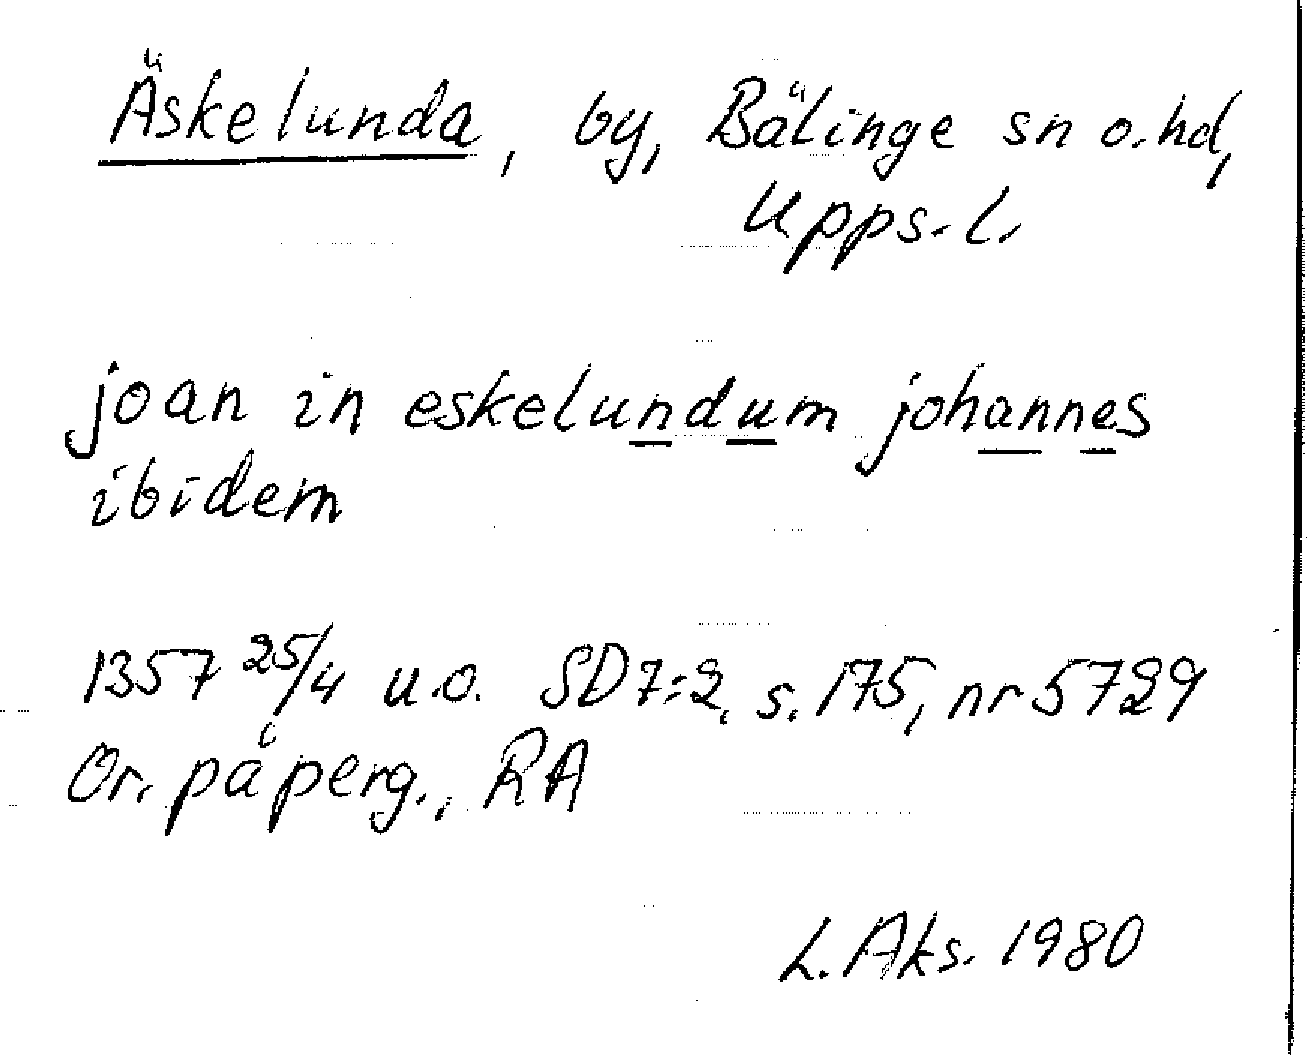 Äskelunda, by, Bälinge sn o. hd,
Upps. l.
joan in eskelundum johannes
ibidem
1357 25/4 u.o. SD 7:2, s. 175, nr 5729
Or. på perg., RA
L. Aks. 1980